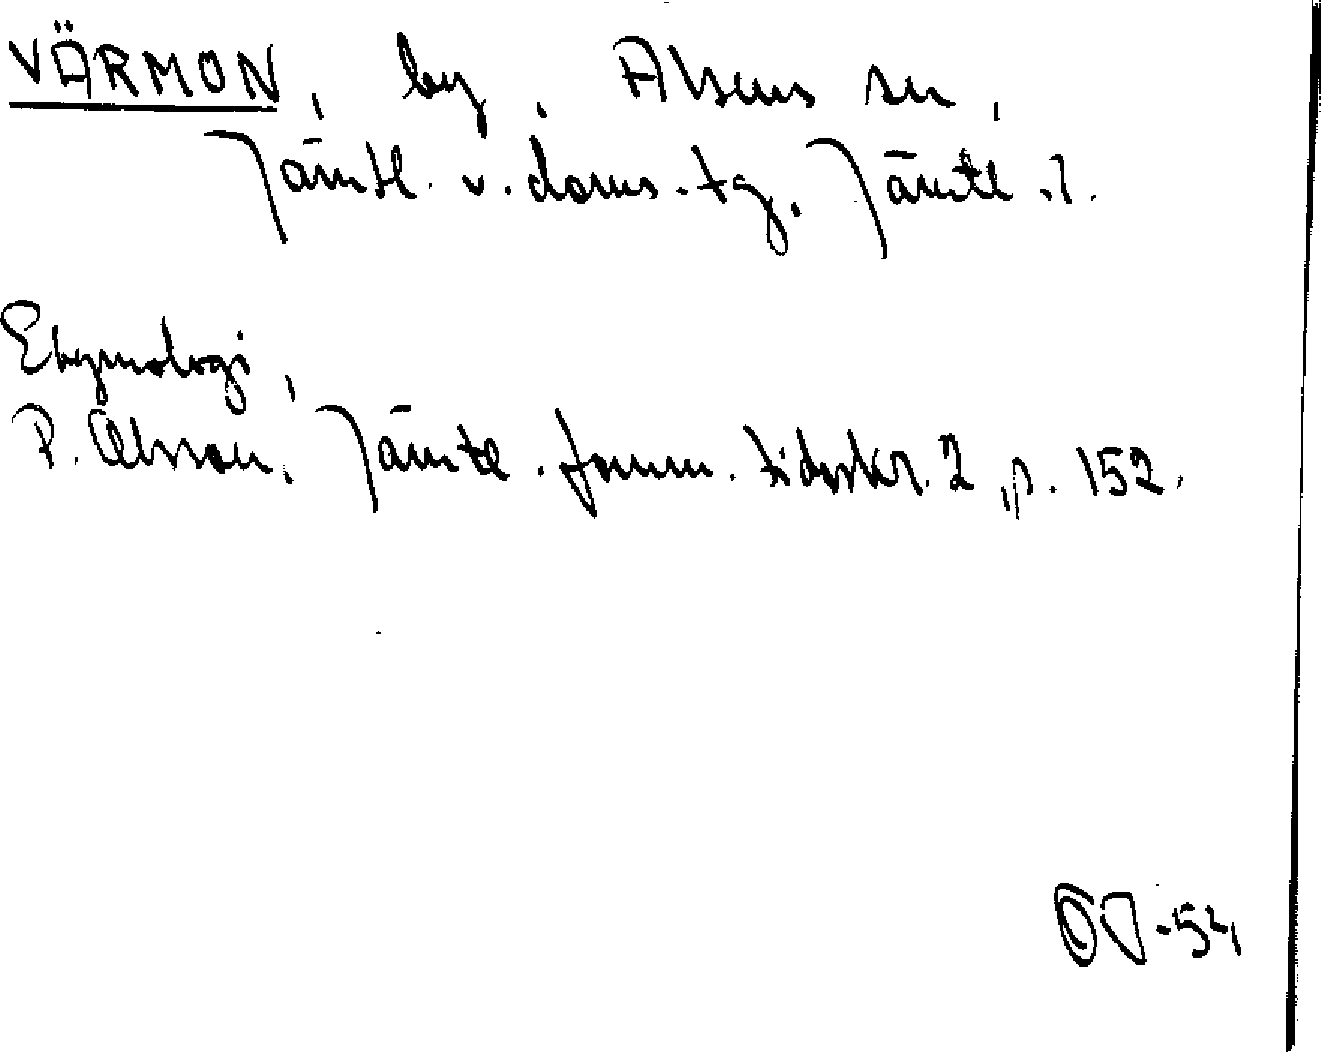 VÄRMON, by, Alsens sn,
Jämtl. v. doms.-tg, Jämtl. l.
Etymologi,
P. Olsson, Jämtl. fornm. tidskr. 2, p. 152.
-54